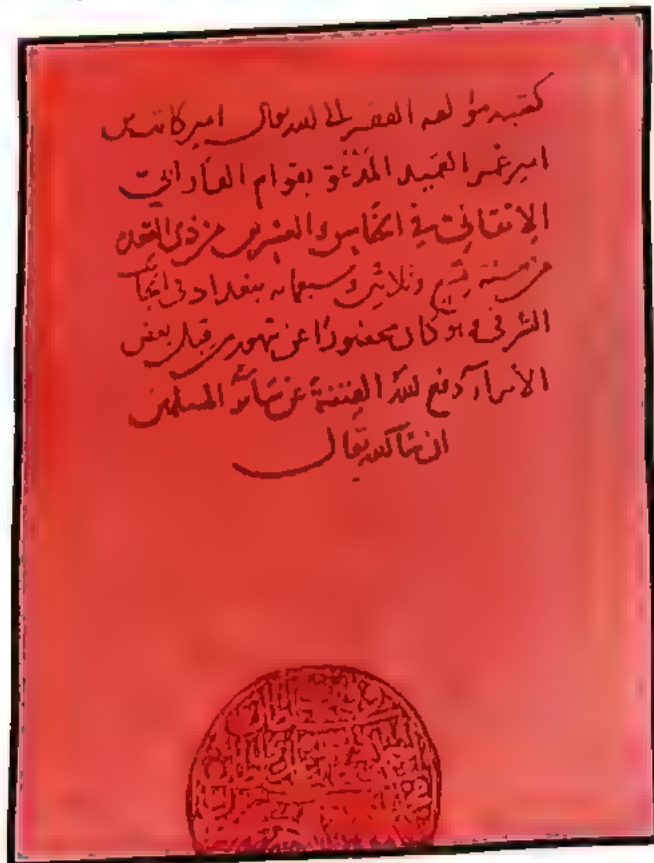 كتبه مؤلفه الفقير الى الله تعالى امير كاتب بن
امير عمر العميد المدعو بقوام الفارابي
الاتقاني في الخامس والعشرين من ذي القعدة
من سنة تسع وثلاثين وسبعمائة ببغداد في الجانب
الشرقي وهو كان محصورا عن من قبل بعض
الأمراء دفع الله الفتنة عن سائر المسلمين
ان شاء الله تعالى